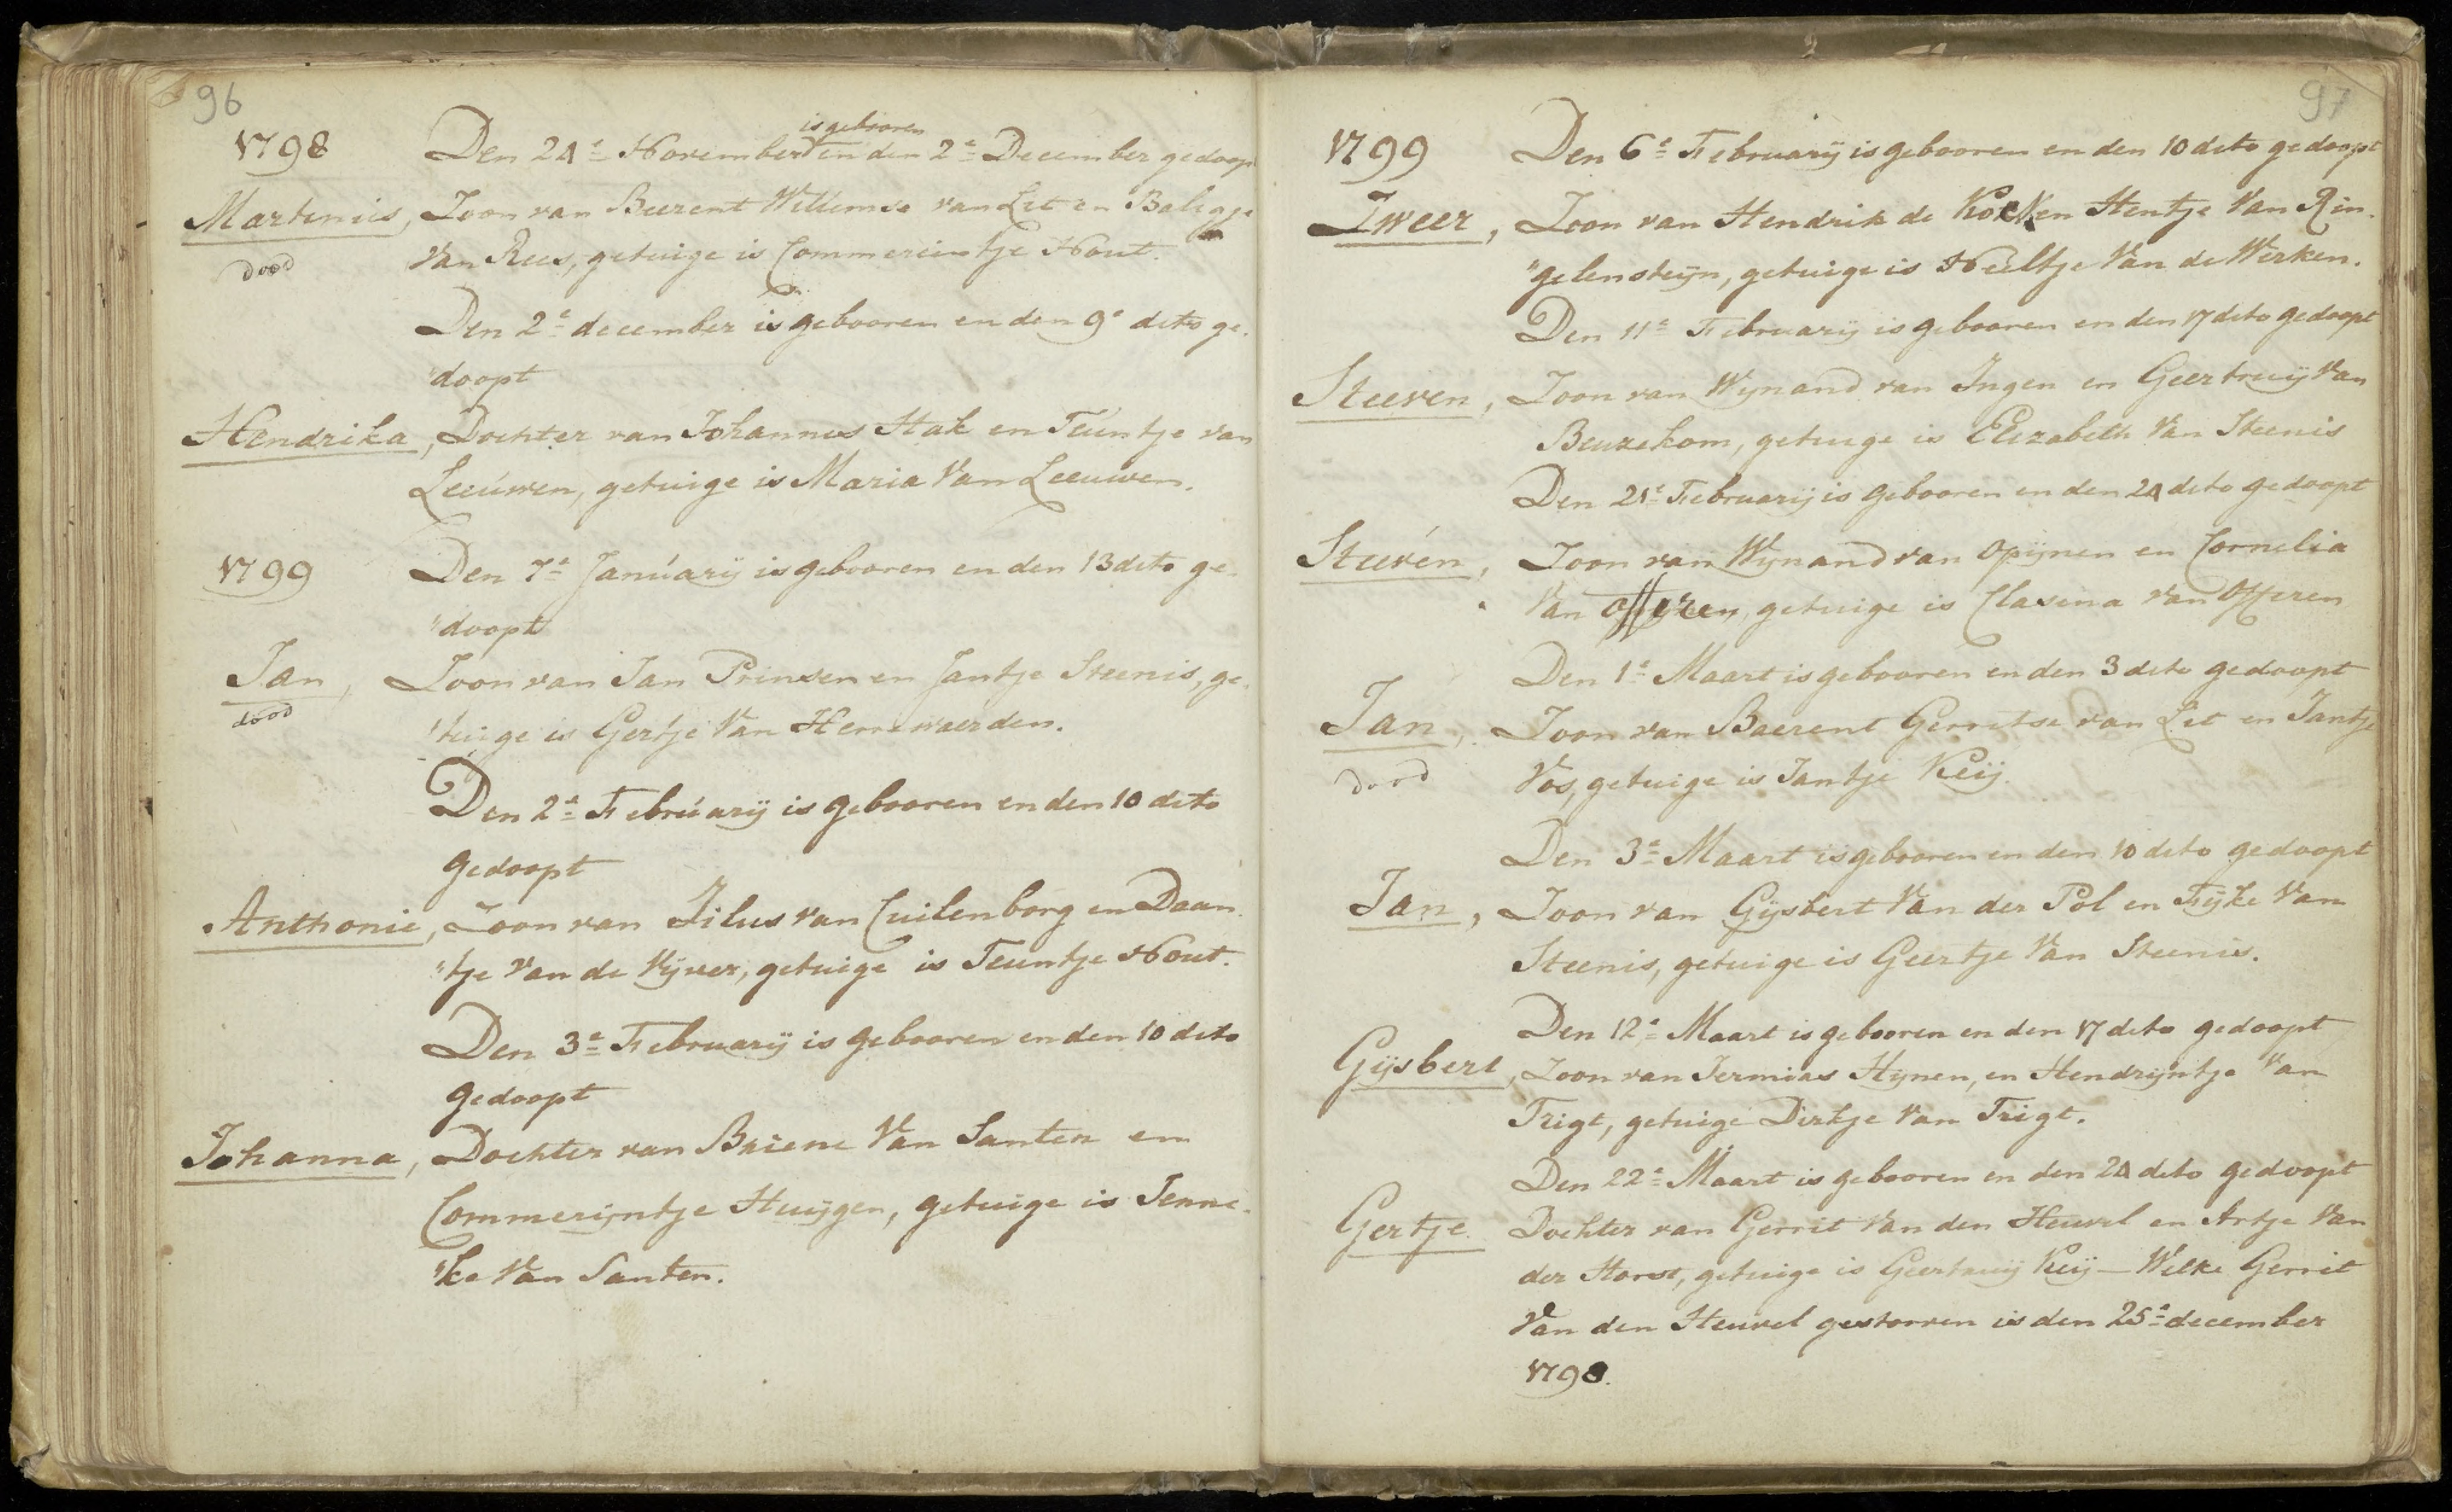 96
1798
is gebooren
Den 24e November en den 2e December gedoop
Martinus, Zoon van Beerent Willemse van Lit en Baligje
dood
Van Rees, getuige is Commerintje Hout.
Den 2e december is gebooren en den 9e dito ge-
"doopt
Hendrika, Dochter van Johannes Stak en Teuntje van
Leeúwen, getuige is Maria Van Leeuwen.
1799
Den 7e Janúarij is gebooren en den 13 dito ge-
"doopt
Jan, Zoon van Jan Prinsen en Jantje Steenis, ge-
dood
"tuige is Gertje Van Hemewaerden.
Den 2e Febrúarij is gebooren en den 10 dito
gedoopt
Anthonie, Zoon van Jilus van Cuilenborg en Daan-
"tje Van de Vijver, getuige is Teuntje Hout.
Den 3e Februarij is gebooren en den 10 dito
gedoopt
Johanna, Dochter van Briene Van Santen en
Commerijntje Huijgen, getuige is Jenne-
"ke Van Santen.
97
1799
Den 6e Februarij is gebooren en den 10 dito gedoopt
Zweer, Zoon van Hendrik de Kock en Hentje Van Rin-
"gelensteijn, getuige is Neeltje Van de Werken.
Den 11e Februarij is gebooren en den 17 dito gedoopt
Steeven, Zoon van Wijnand van Ingen en Geertruij Van
Beuzekom, getuige is Elizabeth Van Steenis
Den 21e Februarij is gebooren en den 24 dito gedoopt
Steevén, Zoon van Wijnand van Opijnen en Cornelia
Van Offeren, getuige is Clasina Van Offeren
Den 1e Maart is gebooren en den 3 dito gedoopt
Jan, Zoon van Baerent Gerritse van Lit en Jantje
dood
Vos, getuige is Jantje Keij.
Den 3e Maart is gebooren en den 10 dito gedoopt
Jan, Zoon van Gijsbert Van der Pol en Fijke Van
Steenis, getuige is Geertje Van Steenis.
Den 12e Maart is gebooren en den 17 dito gedoopt
Gijsbert, Zoon van Jermias Hijnen, en Hendrijntje Van
Trigt, getuige Dirkje Van Trigt.
Den 22e Maart is gebooren en den 24 dito gedoopt
Gertje. Dochter van Gerrit Van den Heuvel en Artje Van
der Horst, getuige is Geertruij Keij — Welke Gerrit
Van den Heuvel gestorven is den 25e december
1798.